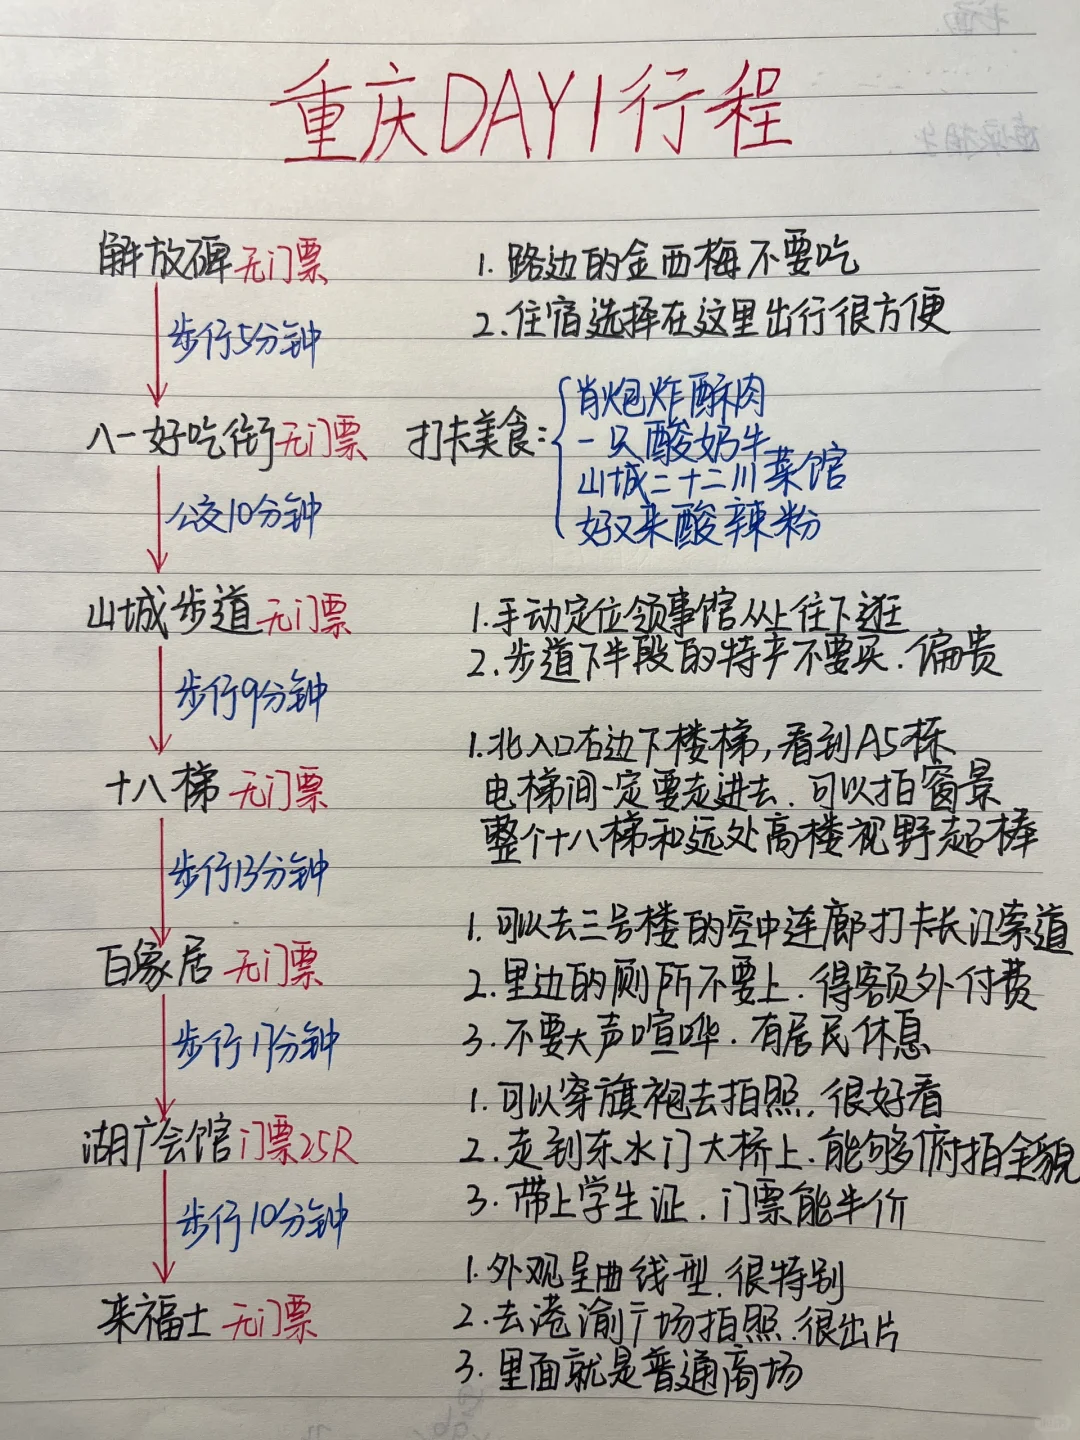 重庆DAY1行程
解放碑 无门票
1. 路边的金西梅不要吃
2. 住宿选择在这里出行很方便
步行5分钟
八一好吃街 无门票
打卡美食:
肖炮炸酥肉
一只酸奶牛
山城二十二川菜馆
好又来酸辣粉
公交10分钟
山城步道 无门票
1. 手动定位领事馆从上往下逛
2. 步道下半段的特产不要买.偏贵
步行9分钟
十八梯 无门票
1. 北入口右边下楼梯,看到A5栋
电梯间一定要走进去.可以拍窗景
整个十八梯和远处高楼视野超棒
步行13分钟
白象居 无门票
1. 可以去三号楼的空中连廊打卡长江索道
2. 里边的厕所不要上.得额外付费
3. 不要大声喧哗.有居民休息
步行17分钟
湖广会馆 门票25R
1. 可以穿旗袍去拍照.很好看
2. 走到东水门大桥上.能够俯拍全貌
3. 带上学生证.门票能半价
步行10分钟
来福士 无门票
1. 外观呈曲线型.很特别
2. 去港渝广场拍照.很出片
3. 里面就是普通商场